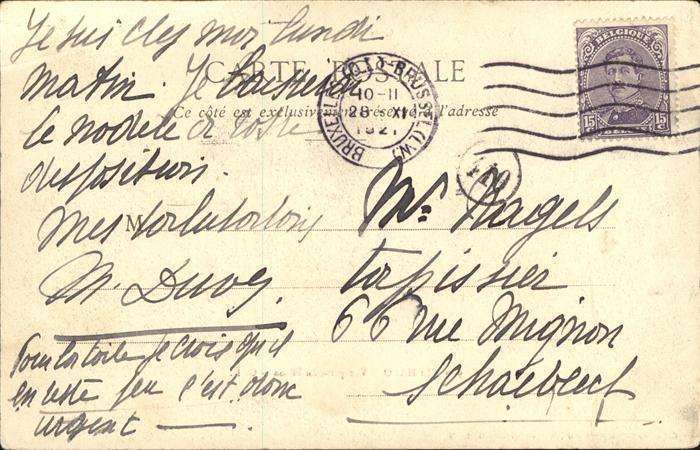 Je suis chez moi lundi
matin. Je
CARTE POSTALE
Ce côté est exclusivement réservé à l'adresse
le modèle à
disposition.
Mes
M. Duvoy.
Pour la toile je crois qu'il
en reste peu c'est donc
urgent
BRUXELLES
10-11
28 XI
1921
BELGIQUE
15 15
BELGIË
110
M
Mr. Nagels
tapissier
66 rue Mignon
Schaebeeck